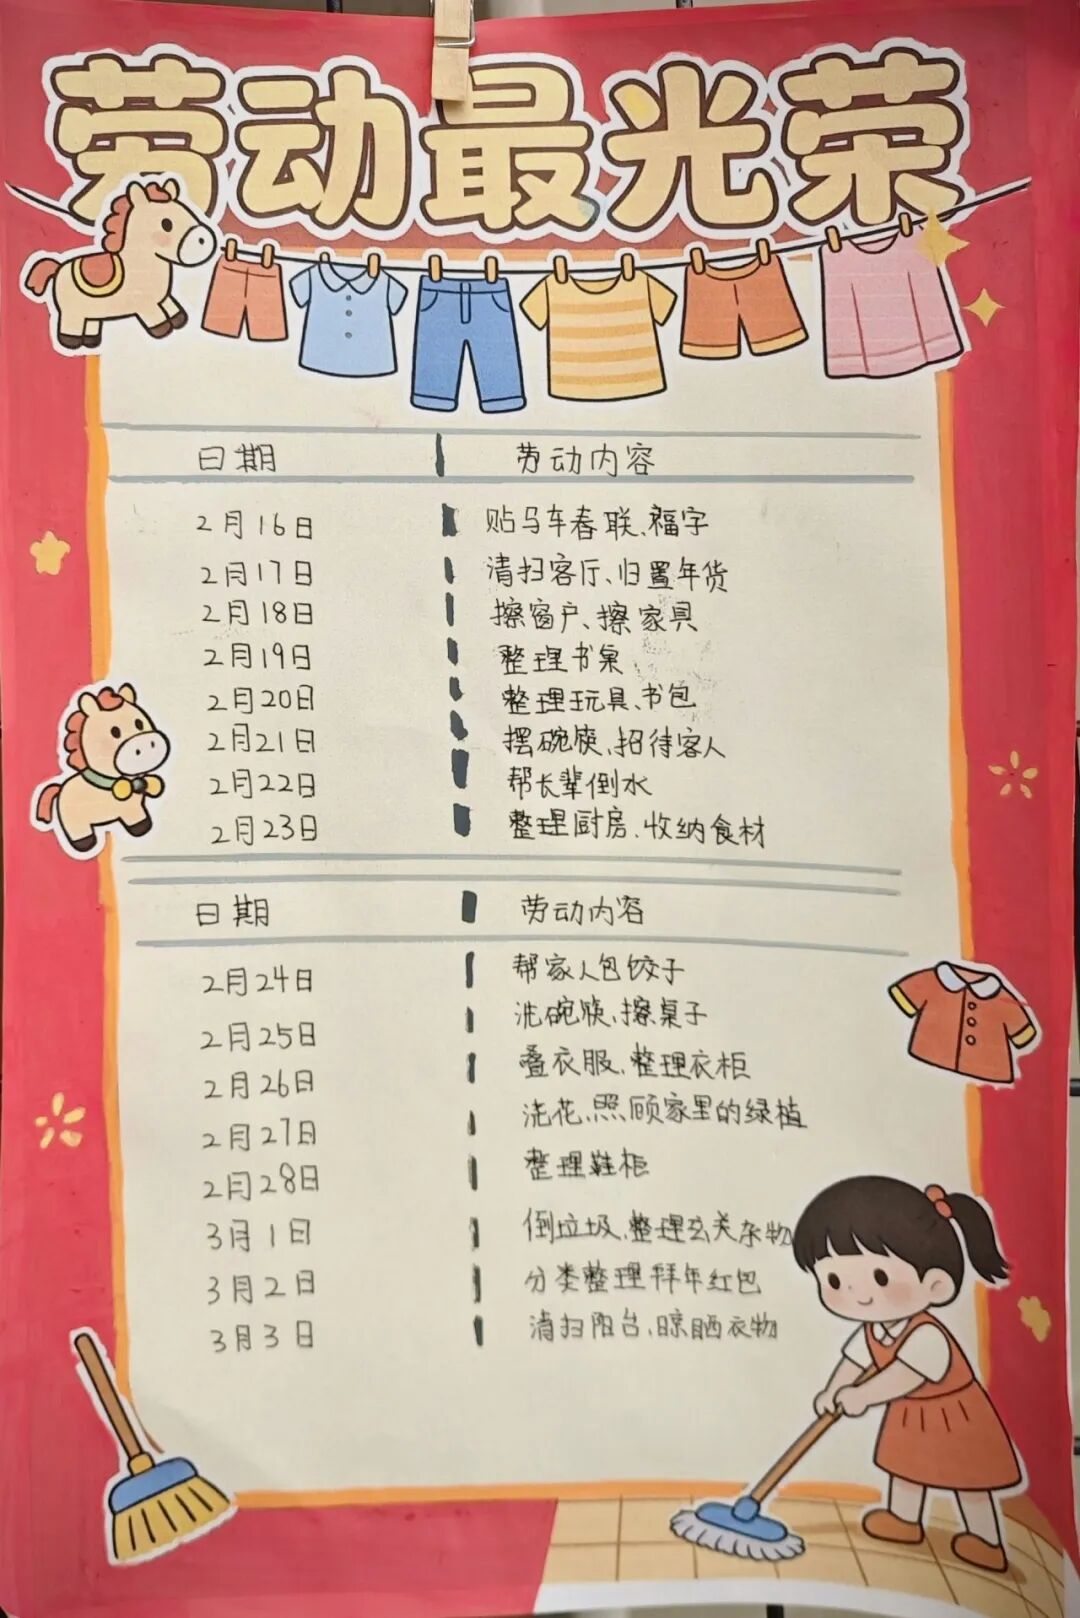 劳动最光荣
日期 劳动内容
2月16日 贴马车春联、福字
2月17日 清扫客厅、归置年货
2月18日 擦窗户、擦家具
2月19日 整理书桌
2月20日 整理玩具、书包
2月21日 摆碗筷、招待客人
2月22日 帮长辈倒水
2月23日 整理厨房、收纳食材
日期 劳动内容
2月24日 帮家人包饺子
2月25日 洗碗筷、擦桌子
2月26日 叠衣服、整理衣柜
2月27日 浇花、照顾家里的绿植
2月28日 整理鞋柜
3月1日 倒垃圾、整理玄关杂物
3月2日 分类整理拜年红包
3月3日 清扫阳台、晾晒衣物